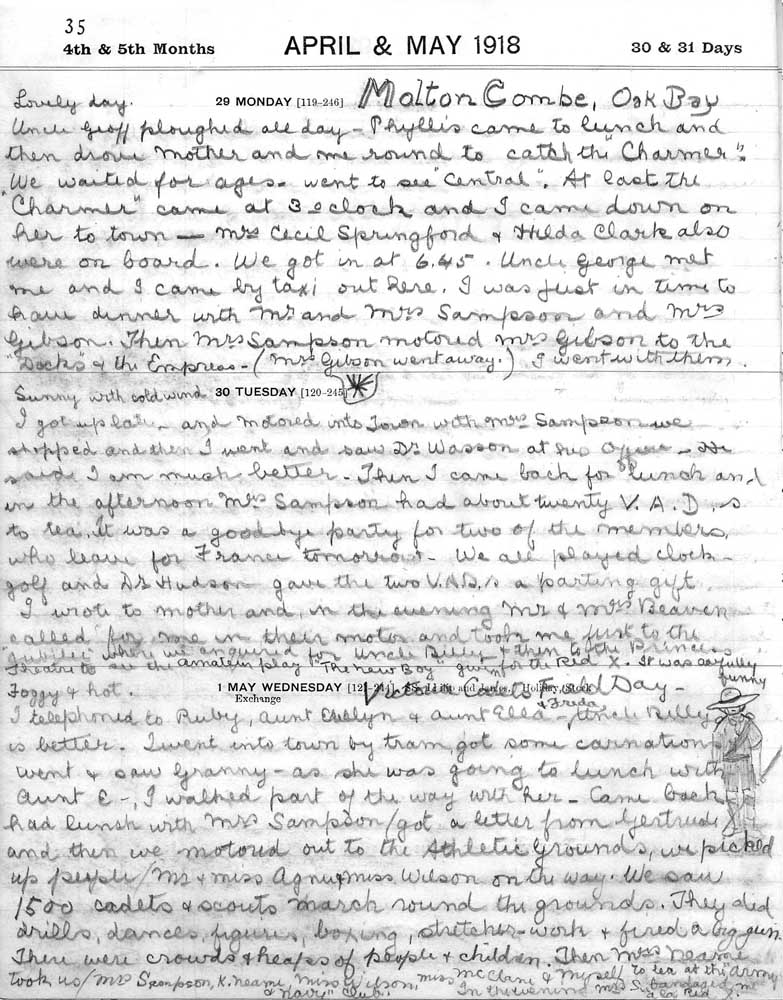 35
4th & 5th Months APRIL & MAY 1918 30 & 31 Days
Lovely day. 29 MONDAY [119-246] Molton Combe, Oak Bay
Uncle Geoff ploughed all day - Phyllis came to lunch and
then drove Mother and me round to catch the "Charmer".
We waited for ages - went to see "Central". At last the
"Charmer" came at 3 oclock and I came down on
her to town — Mrs Cecil Springford & Hilda Clark also
were on board. We got in at 6.45. Uncle George met
me and I came by taxi out here. I was just in time to
have dinner with Mr and Mrs Sampson and Mrs
Gibson. Then Mrs Sampson motored Mrs Gibson to the
"Docks" & the Empress - (Mrs Gibson went away.) I went with them.
Sunny with cold wind 30 TUESDAY [120-245]
I got up late - and motored into Town with Mrs Sampson we
shopped and then I went and saw Dr Wasson at his Office - He
said I am much better - Then I came back for lunch and
in the afternoon Mrs Sampson had about twenty V.A.D.s
to tea. It was a goodbye party for two of the members,
who leave for France tomorrow - We all played clock-
golf and Dr Hudson gave the two V.A.D.s a parting gift
I wrote to mother and, in the evening Mr & Mrs Beaven
called for me in their motor and took me first to the
"Jubilee" where we enquired for Uncle Billy & then to the Princess
Theatre to see the amateur play "The New Boy" given for the Red X. It was awfully
funny
Foggy & hot. 1 MAY WEDNESDAY Cadets Field Day -
Exchange
& Freda
I telephoned to Ruby, aunt Evelyn & aunt Ella - Uncle Billy
is better. I went into town by tram got some carnations
went & saw Granny - as she was going to lunch with
Aunt E -, I walked part of the way with her - Came back
had lunch with Mrs Sampson / got a letter from Gertrude
and then we motored out to the Athletic Grounds, we picked
up people / Mr & Miss Agnew & Miss Wilson on the way. We saw
1500 cadets & scouts march round the grounds. They did
drills, dances, figures, boxing, stretcher-work & fired a big gun
There were crowds & heaps of people & children. Then Mrs Neame
took us / Mrs Sampson, K. Neame, Miss Wilson, Miss McClane & Myself to tea at the Army
& Navy" Club. In the evening Mrs S. bandaged me